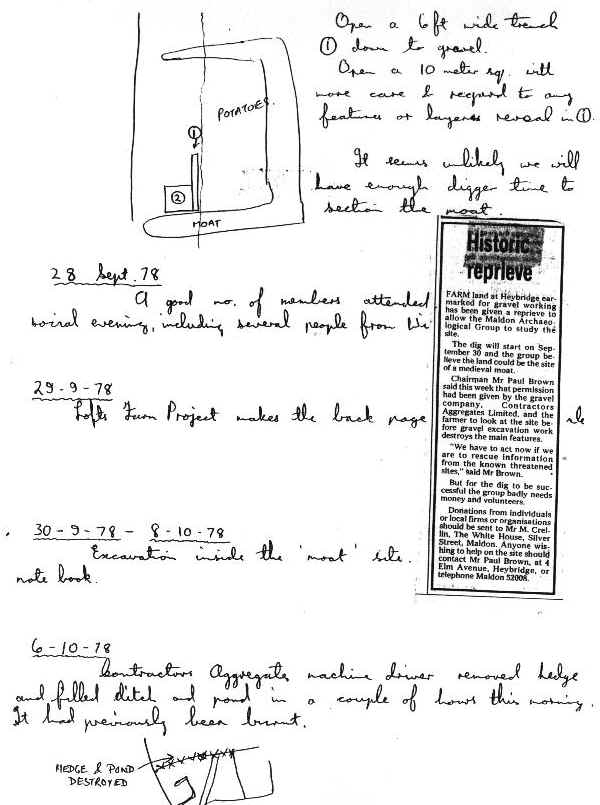 Open a 6ft wide trench
① down to gravel.
Open a 10 meter sq. with
more care & regard to any
features or layers reveal in ①.
POTATOES.
①
②
MOAT
It seems unlikely we will
have enough digger time to
section the moat.
28 Sept. 78
A good no. of members attended
social evening, including several people from
29-9-78
Lofts Farm Project makes the back page
Historic
reprieve
FARM land at Heybridge ear-
marked for gravel working
has been given a reprieve to
allow the Maldon Archaeo-
logical Group to study the
site.
The dig will start on Sep-
tember 30 and the group be-
lieve the land could be the site
of a medieval moat.
Chairman Mr Paul Brown
said this week that permission
had been given by the gravel
company, Contractors
Aggregates Limited, and the
farmer to look at the site be-
fore gravel excavation work
destroys the main features.
"We have to act now if we
are to rescue information
from the known threatened
sites," said Mr Brown.
But for the dig to be suc-
cessful the group badly needs
money and volunteers.
Donations from individuals
or local firms or organisations
should be sent to Mr M. Crel-
lin, The White House, Silver
Street, Maldon. Anyone wis-
hing to help on the site should
contact Mr Paul Brown, at 4
Elm Avenue, Heybridge, or
telephone Maldon 52008.
30-9-78 - 8-10-78
Excavation inside the 'moat' site.
note book.
6-10-78
Contractors Aggregate machine driver removed hedge
and filled ditch and pond in a couple of hours this morning.
It had previously been burnt.
HEDGE & POND
DESTROYED